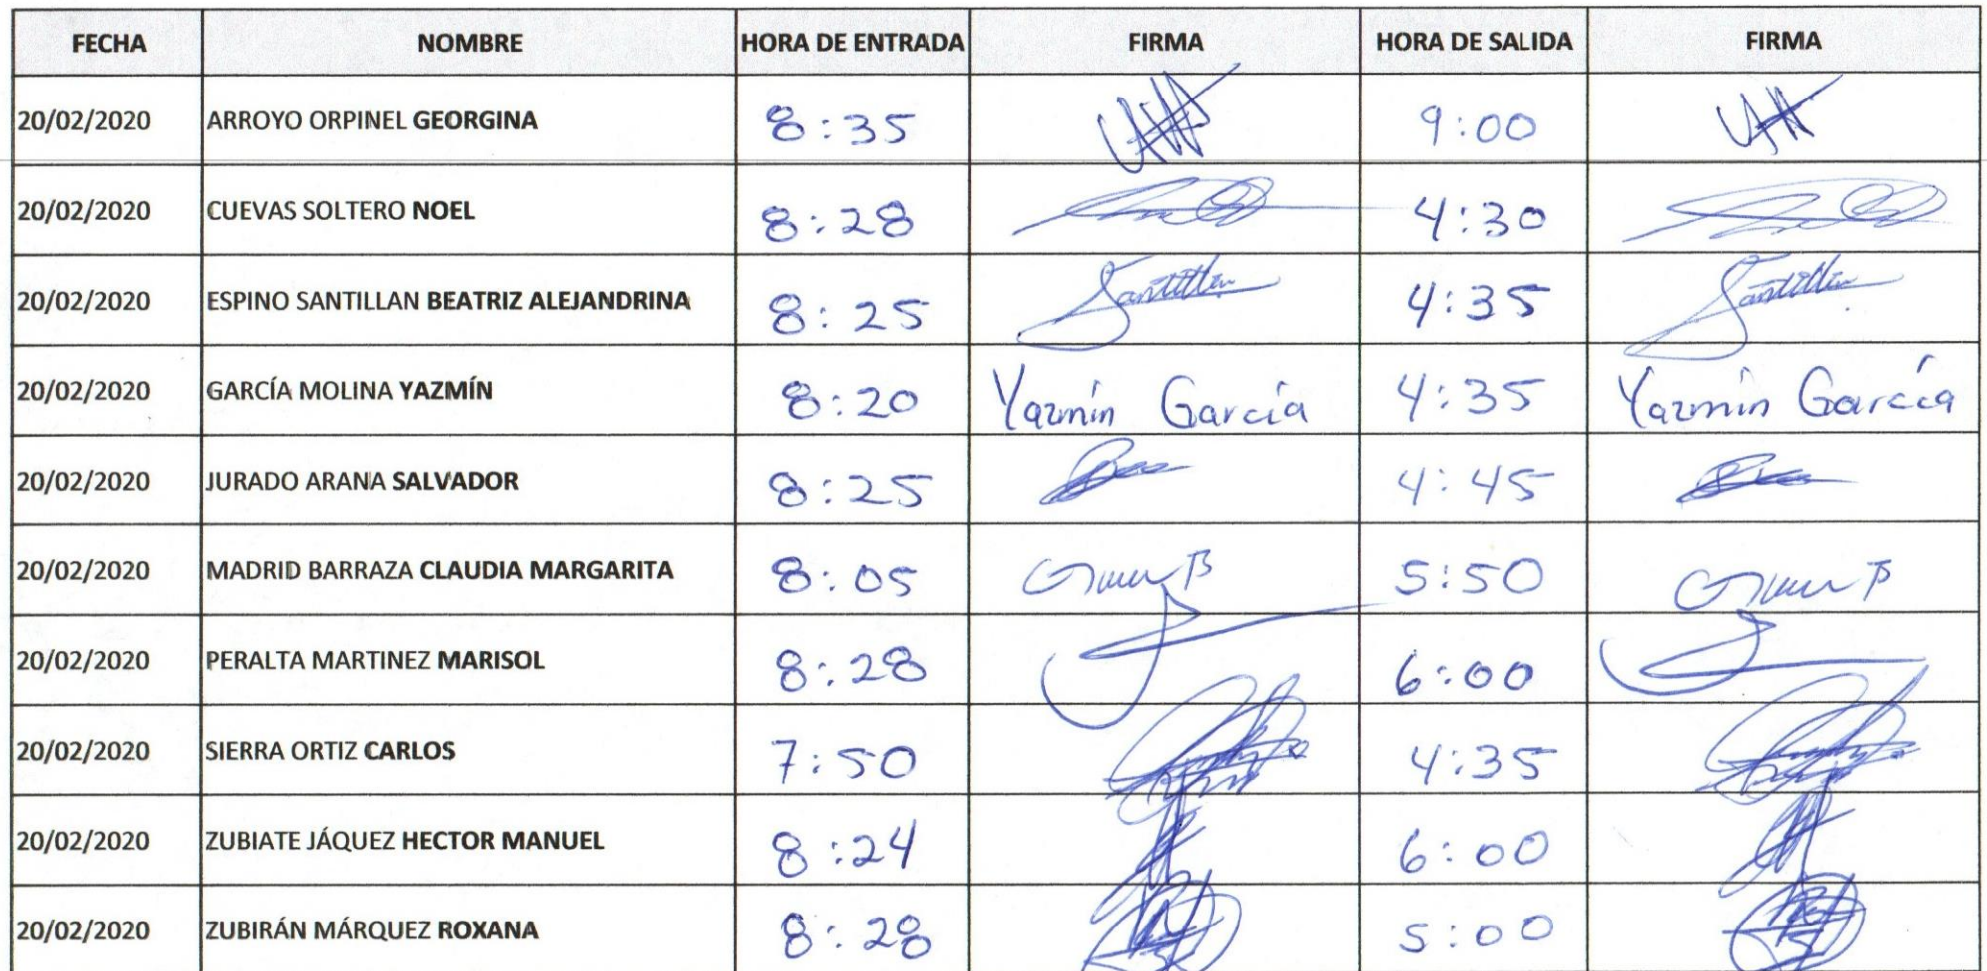 FECHA NOMBRE HORA DE ENTRADA FIRMA HORA DE SALIDA FIRMA
20/02/2020 ARROYO ORPINEL GEORGINA 8:35 9:00
20/02/2020 CUEVAS SOLTERO NOEL 8:28 4:30
20/02/2020 ESPINO SANTILLAN BEATRIZ ALEJANDRINA 8:25 Santillan 4:35 Santillan
20/02/2020 GARCÍA MOLINA YAZMÍN 8:20 Yazmín García 4:35 Yazmín García
20/02/2020 JURADO ARANA SALVADOR 8:25 4:45
20/02/2020 MADRID BARRAZA CLAUDIA MARGARITA 8:05 5:50
20/02/2020 PERALTA MARTINEZ MARISOL 8:28 6:00
20/02/2020 SIERRA ORTIZ CARLOS 7:50 4:35
20/02/2020 ZUBIATE JÁQUEZ HECTOR MANUEL 8:24 6:00
20/02/2020 ZUBIRÁN MÁRQUEZ ROXANA 8:28 5:00